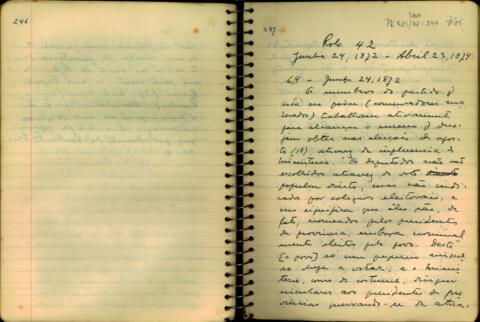 246
247
Rolo 42
Junho 24, 1872 - Abril 23, 1874
69 - Junho 24, 1872
O membros do partido q
está no poder (conservadores mo
derados) trabalham ativamente
para alcançar o sucesso q dese
jam obter nas eleições de agos
to (18), através da influencia do
ministerio. Os deputados não são
escolhidos através de voto direto
popular direto, mas são indi
cados por colegios eleitorais, o
que significa que êles são, de
fato, nomeados pelos presidentes
de provincia, embora nominal
mente eleitos pelo povo. Dêste
[o povo] só um pequeno
se a votar, e o minis
terio, como de costume, dirigiu
circulares aos presidentes de pro
vincias